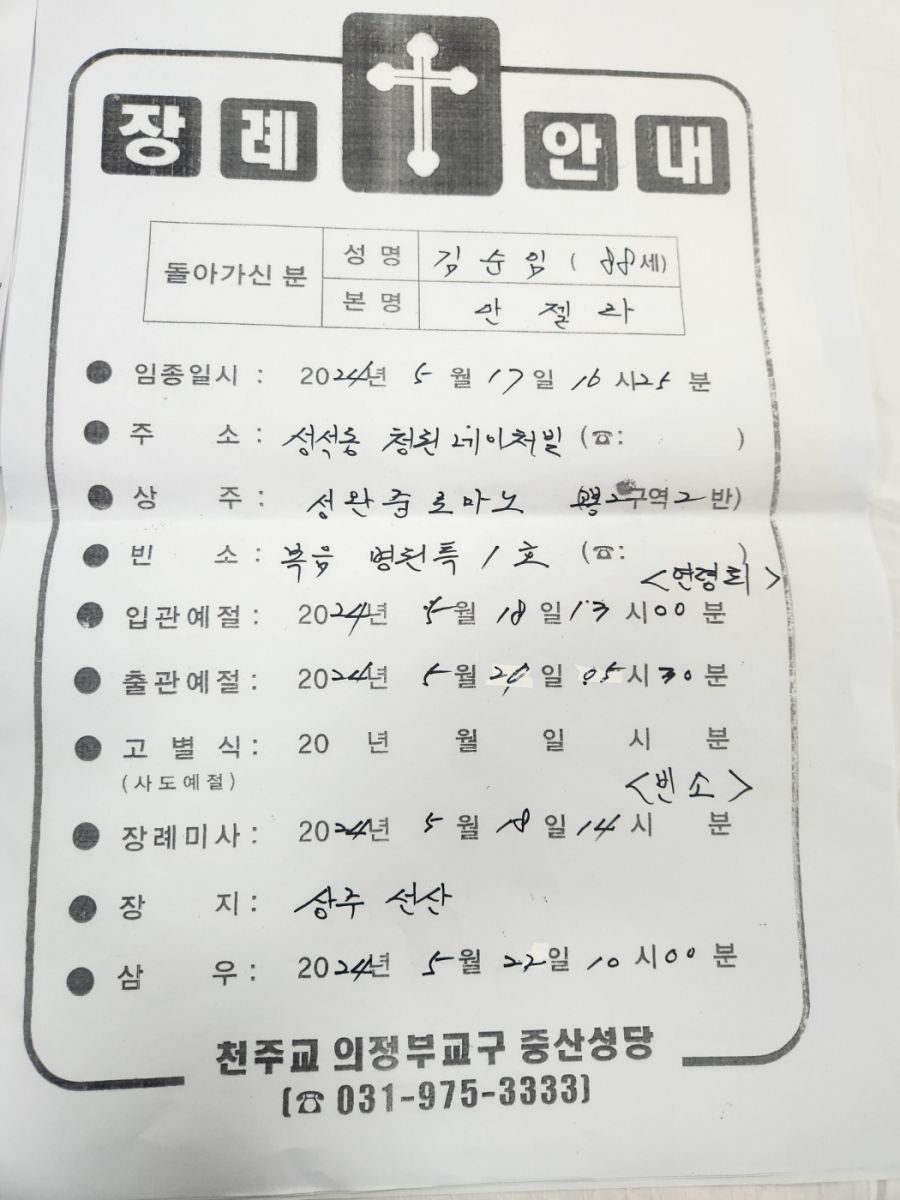 장례 안내
돌아가신 분
성 명 김순임 ( 88세)
본 명 안젤라
임종일시 : 2024년 5월 17일 16시25분
주 소 : 성석동 청원네이처빌 (☎: )
상 주 : 성완중 로마노 2구역2반)
빈 소 : 복음 병원특 1호 (☎: )
<연령회>
입관예절 : 2024년 5월 18일 13시00분
출관예절 : 2024년 5월 20일 05시30분
고 별 식 : 20 년 월 일 시 분
(사도예절)
<빈소>
장례미사 : 2024년 5월 18일 14시 분
장 지 : 상주 선산
삼 우 : 2024년 5월 22일 10시00분
천주교 의정부교구 중산성당
(☎ 031-975-3333)